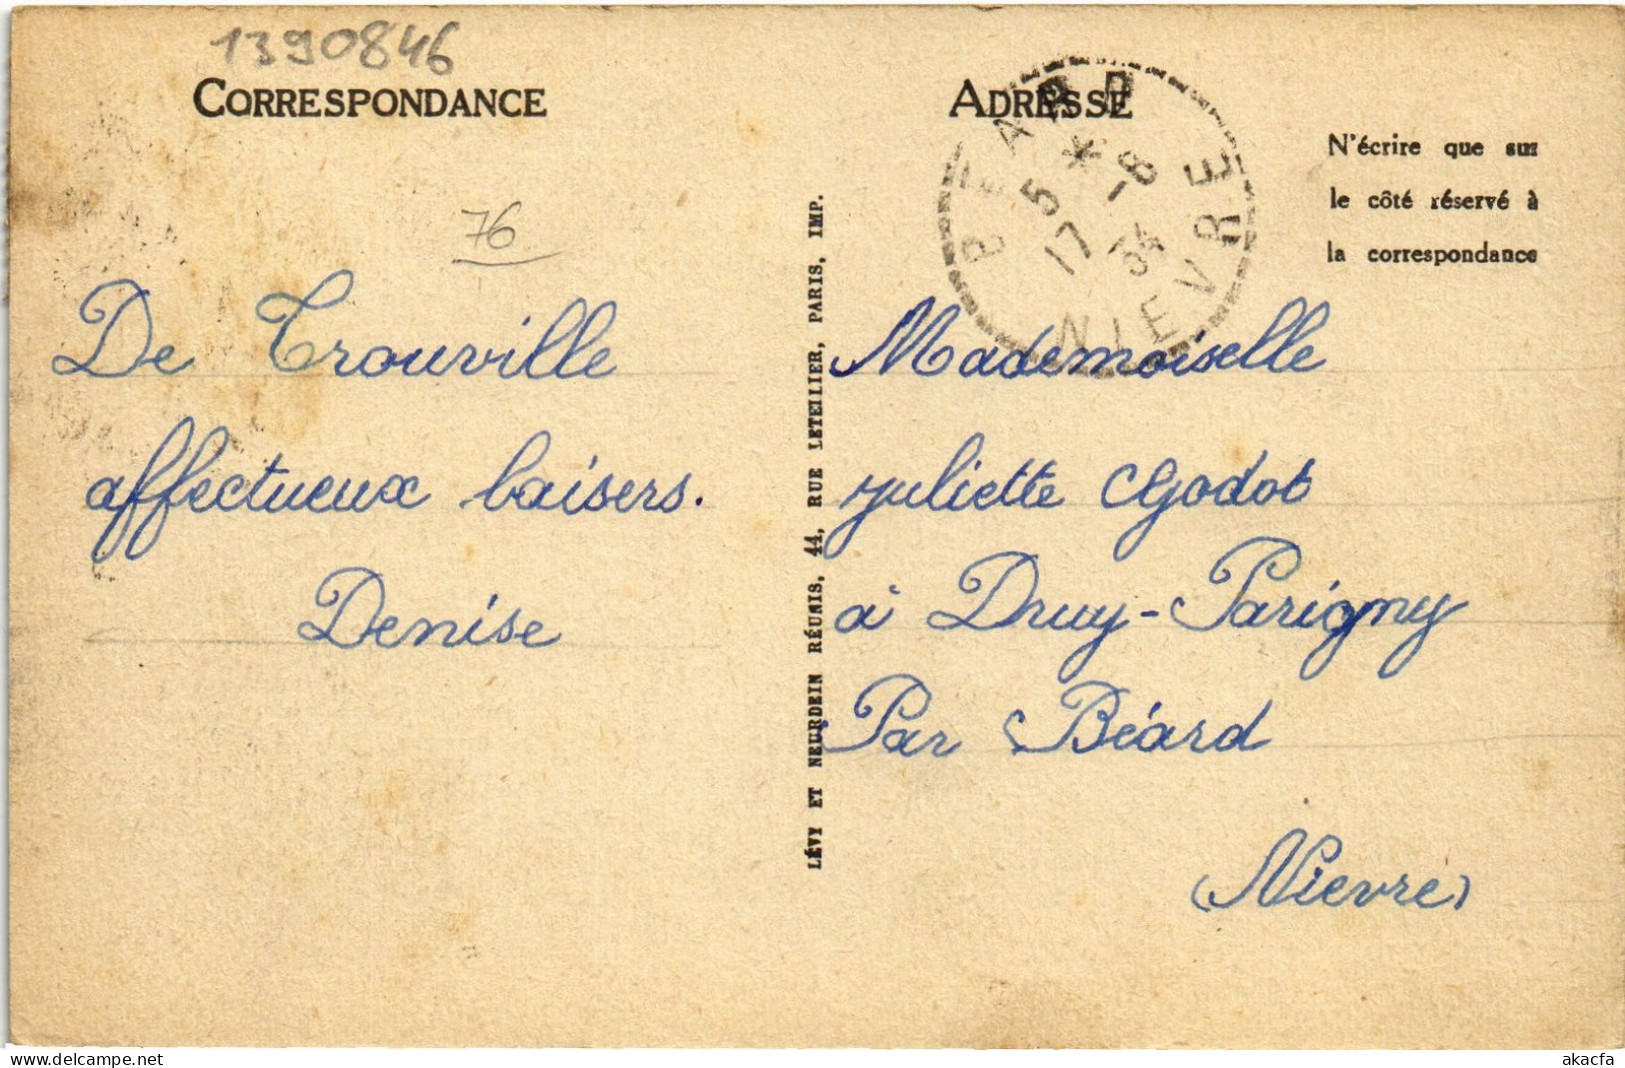 1390846
CORRESPONDANCE
76
De Trouville
affectueux baisers.
Denise
LÉVY ET NEURDEIN RÉUNIS, 44, RUE LETELLIER, PARIS, IMP.
ADRESSE
BÉARD
*
5
17 -8
34
NIEVRE
N'écrire que sur
le côté réservé à
la correspondance
Mademoiselle
Juliette Godot
à Druy-Parigny
Par Béard
(Nievre)
www.delcampe.net
akacfa